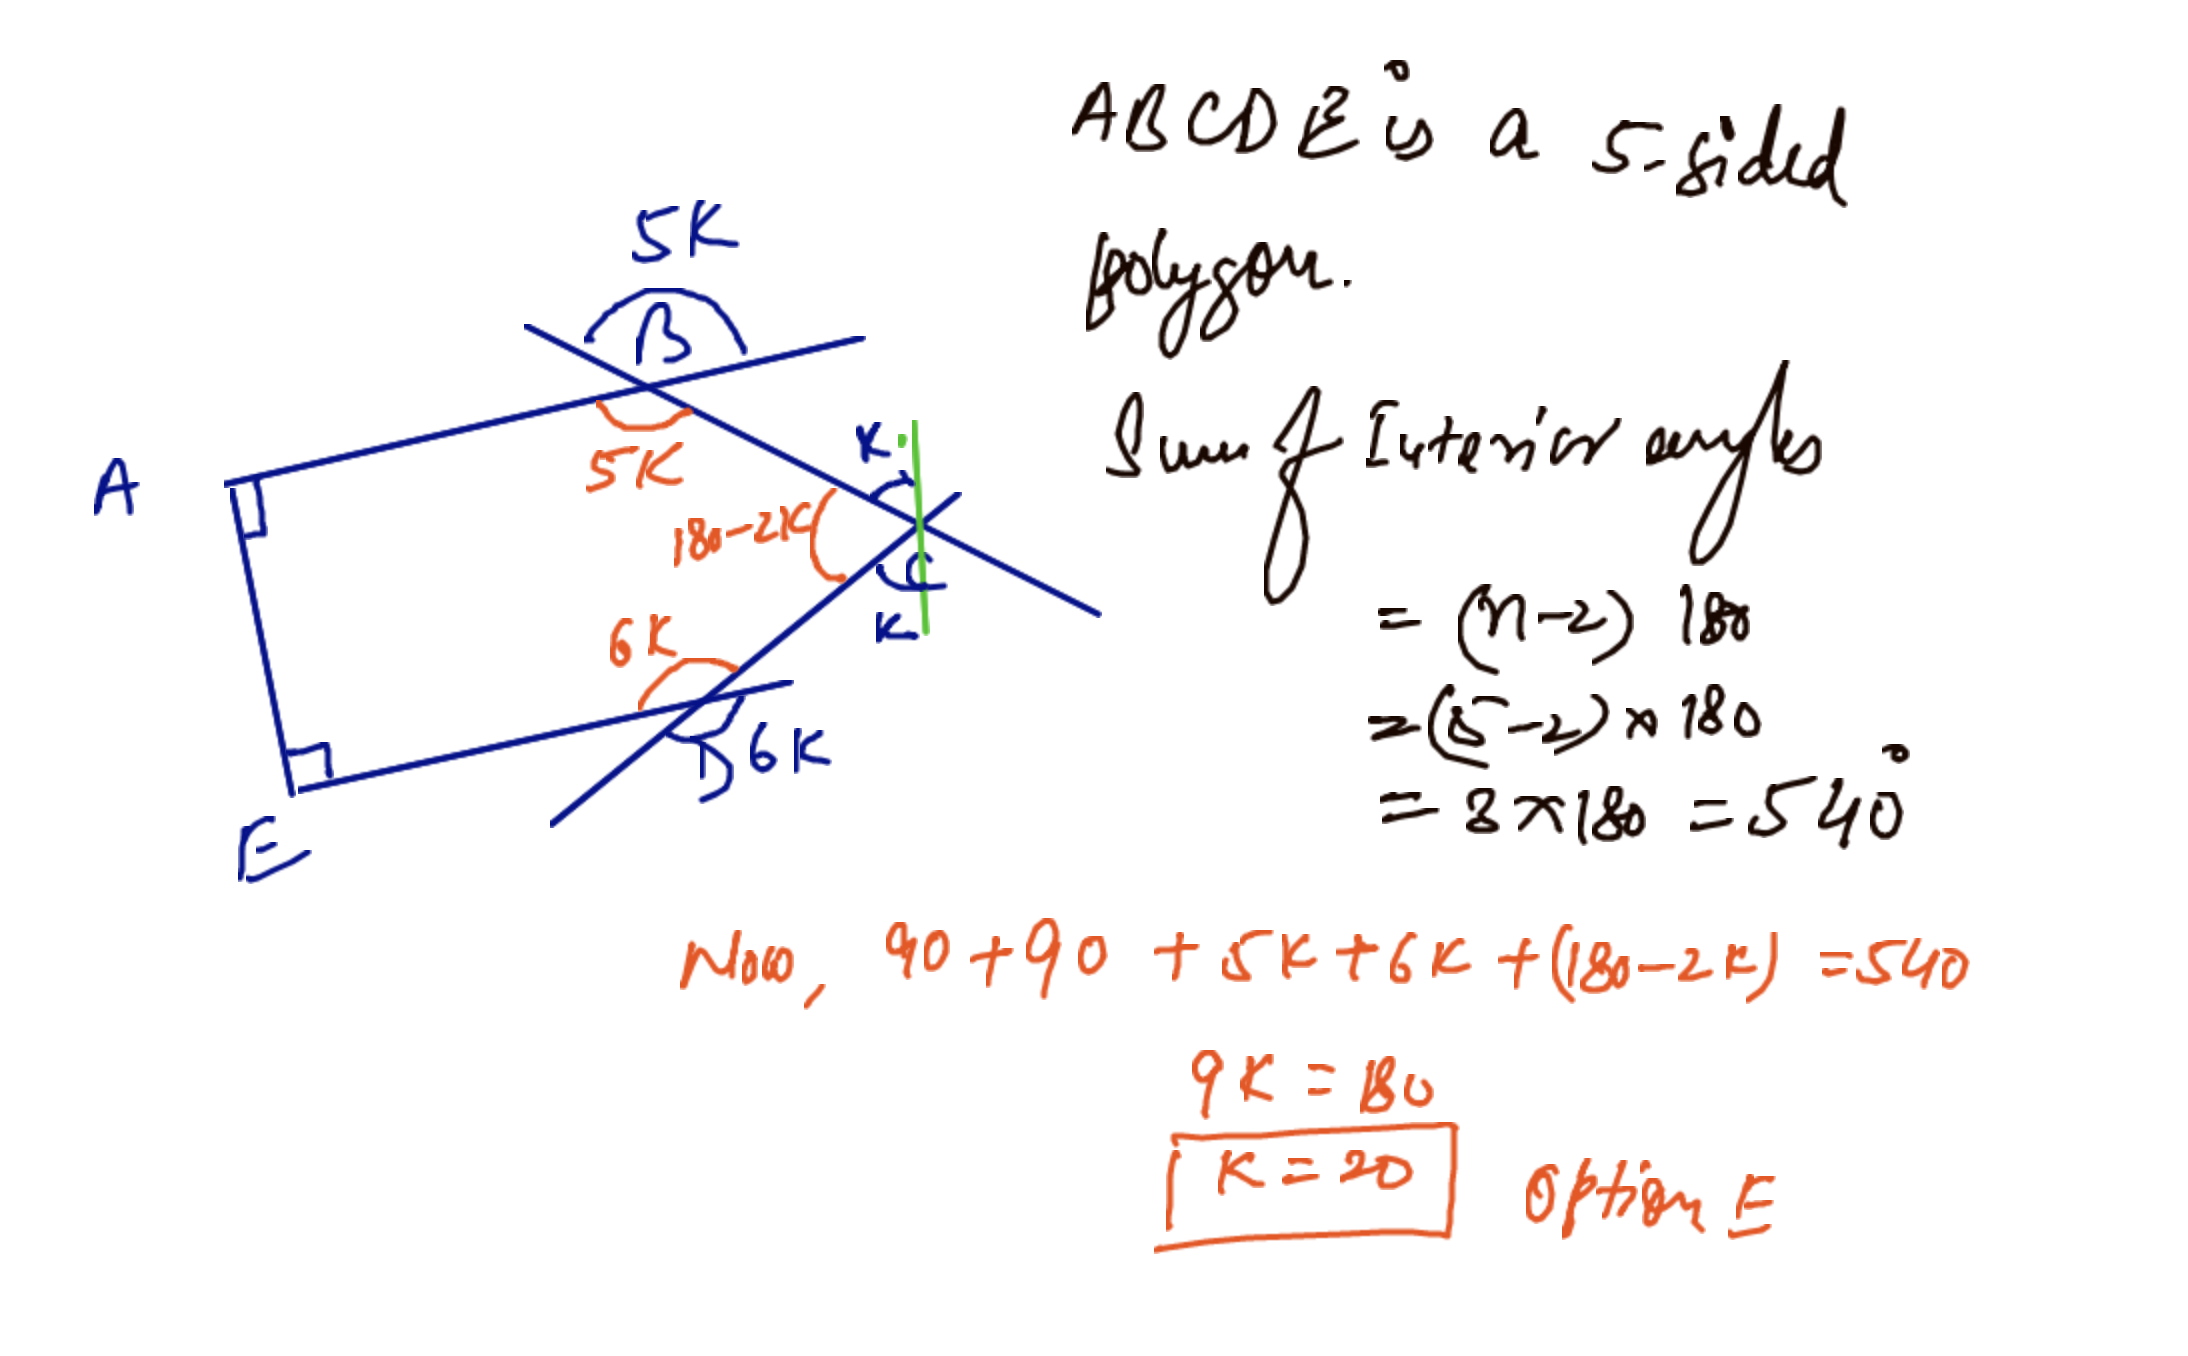 ABCDE is a 5-sided
polygon.
5K
B
A
5K
K
180-2K
C
K
6K
D 6K
E
Sum of Interior angles
= (n-2) 180
= (5-2) × 180
= 3×180 = 540°
Now, 90+90 + 5K+6K +(180-2K) =540
9K = 180
K = 20
Option E